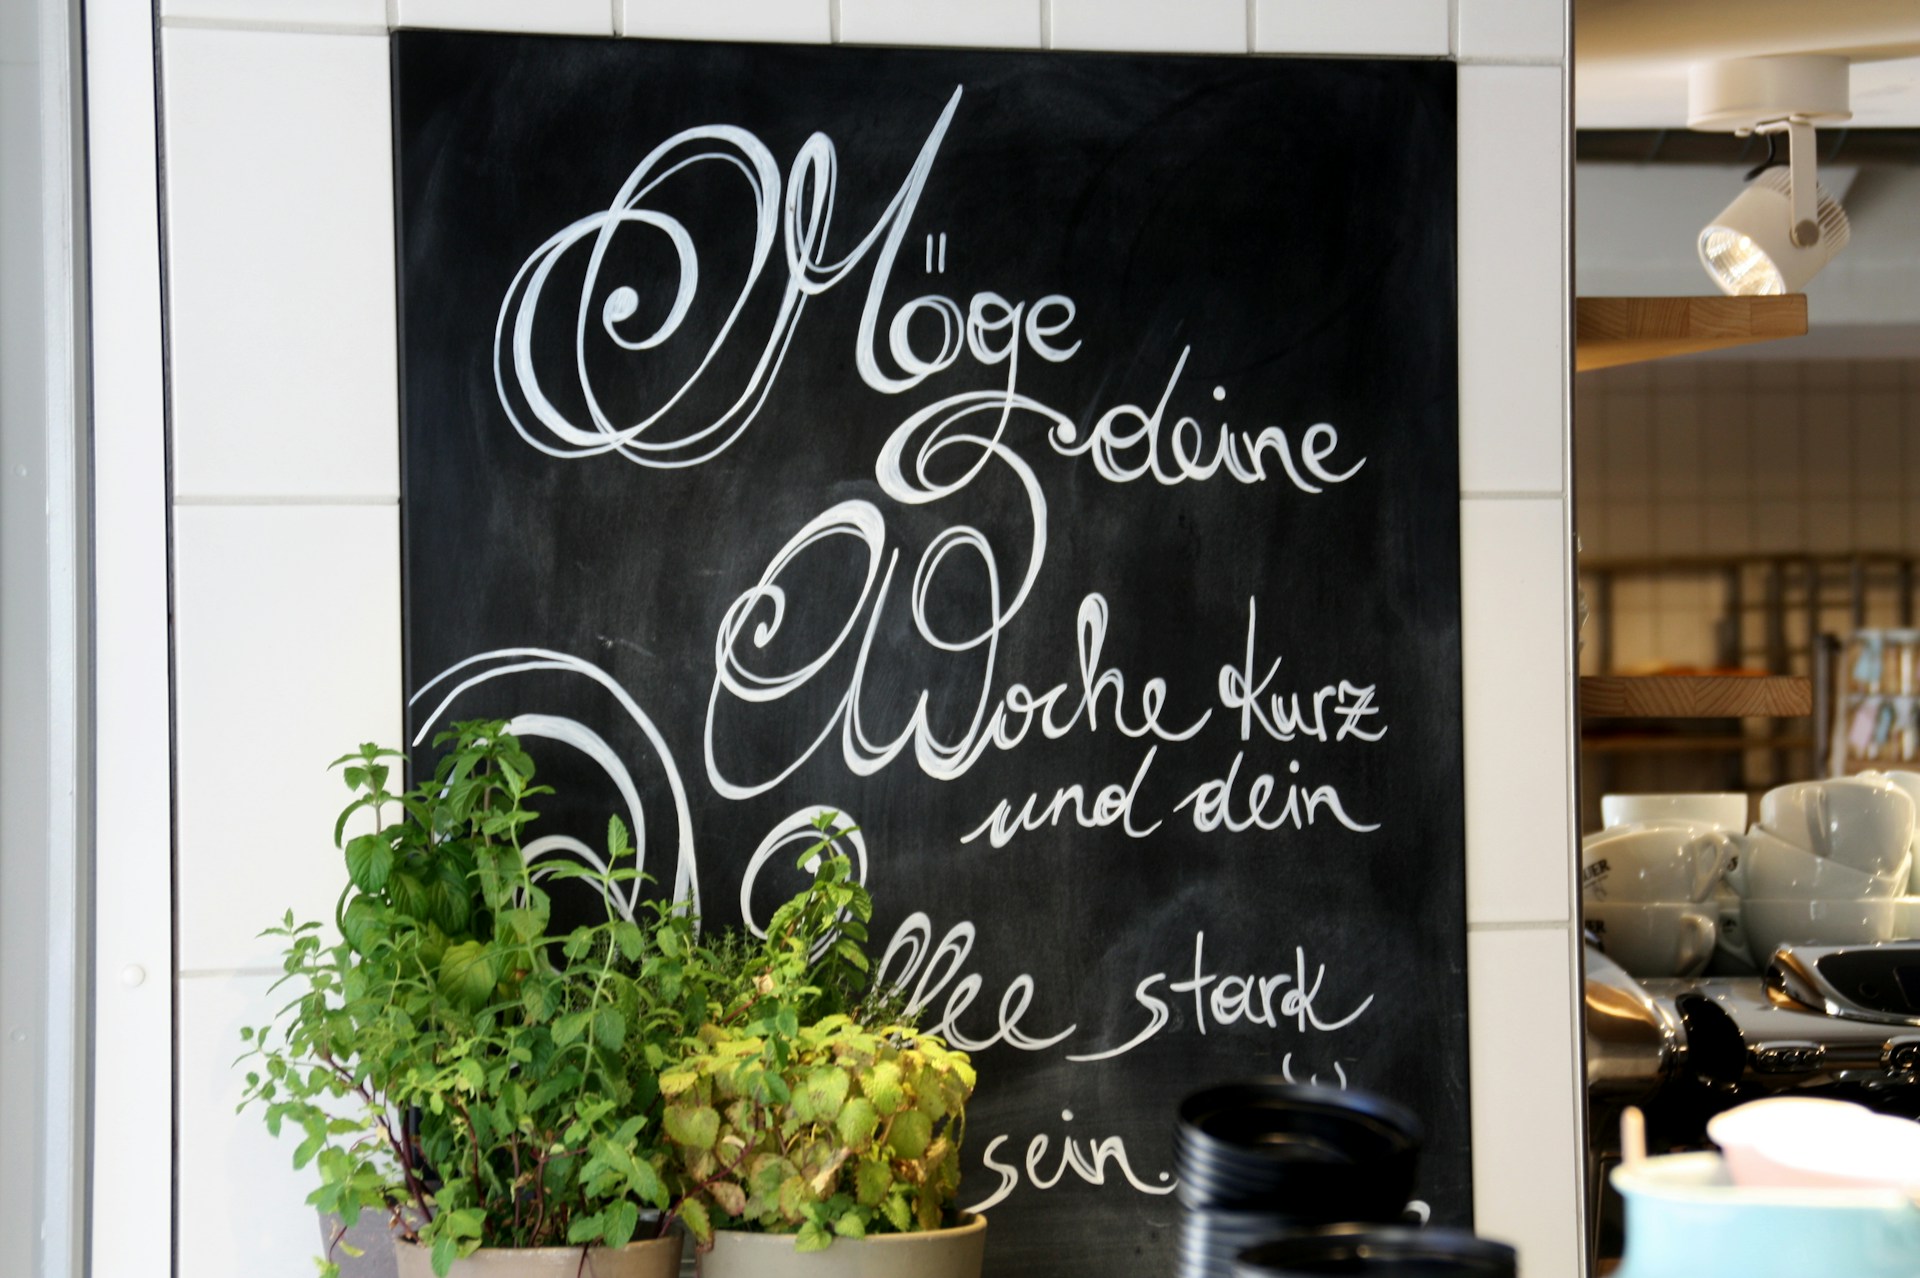 Möge
deine
Woche kurz
und dein
ffee stark
sein.